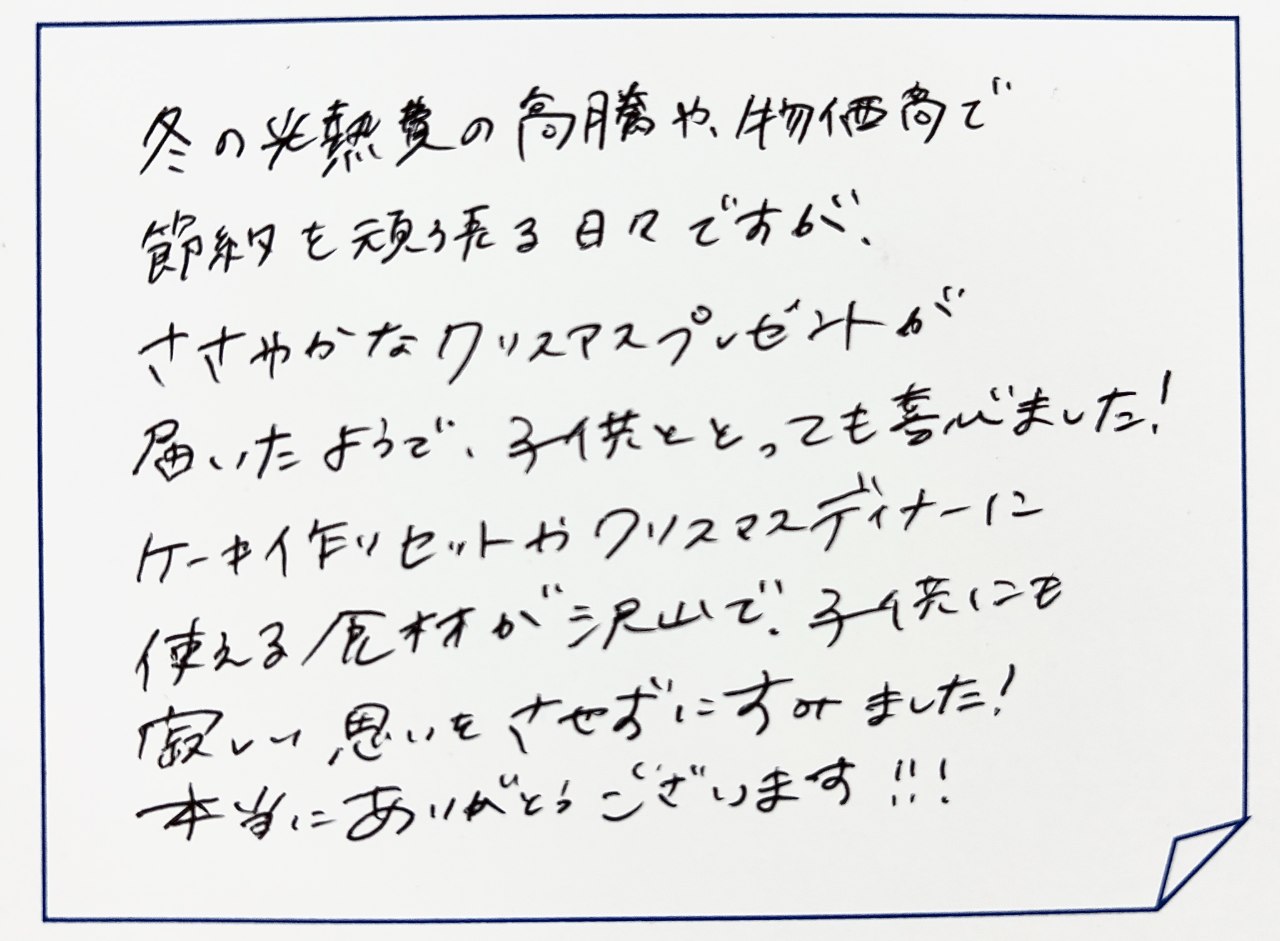 冬の光熱費の高騰や、物価高で
節約を頑張る日々ですが、
ささやかなクリスマスプレゼントが
届いたようで、子供ととっても喜びました!
ケーキ作りセットやクリスマスディナーに
使える食材が沢山で、子供にも
寂しい思いをさせずにすみました!
本当にありがとうございます!!!